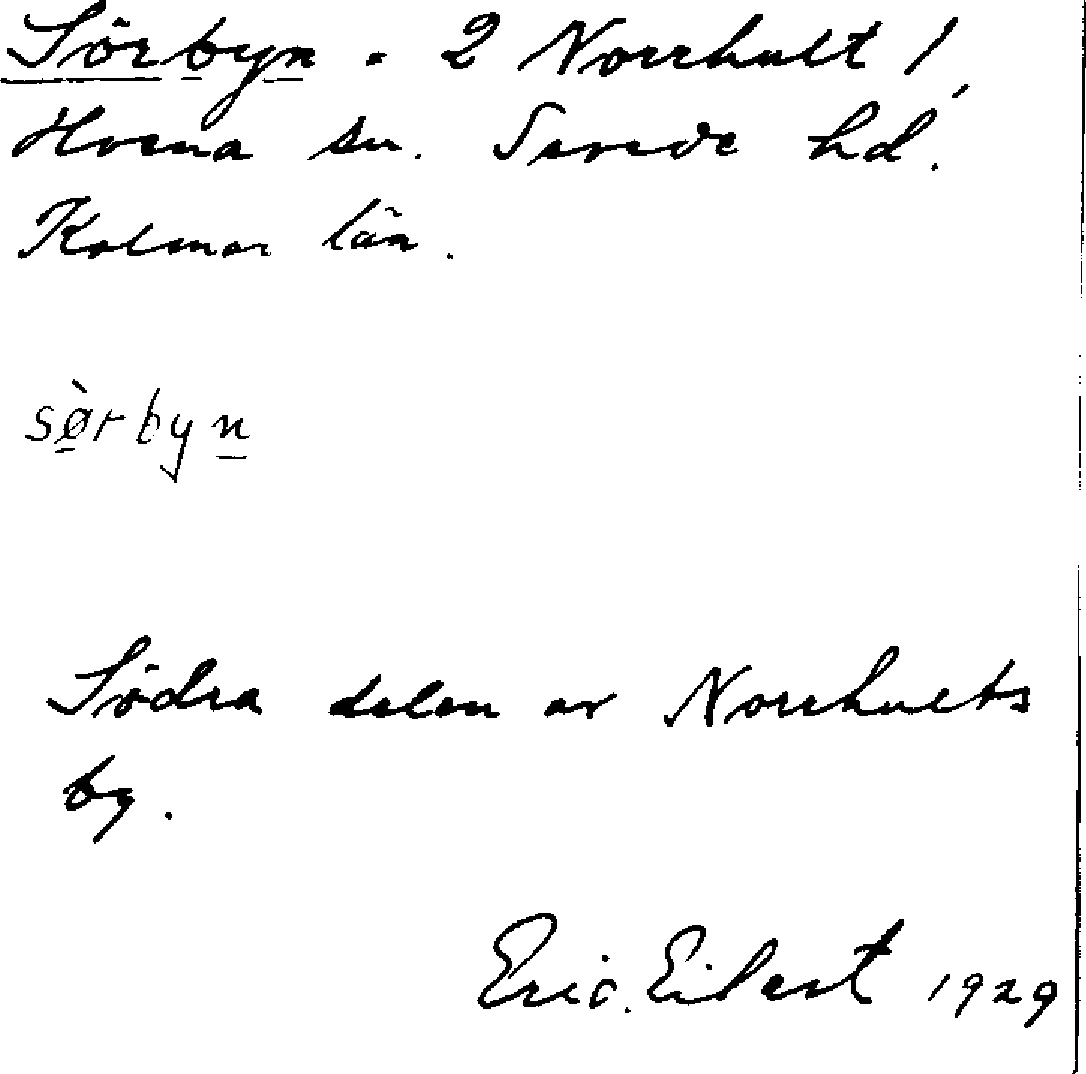 Sörbyn. 2 Norrhult 1,
Hvena sn. Sevede hd.
Kalmar län.
sø̀rbyn
Södra delen av Norrhults
by.
Eric. Eilert 1929